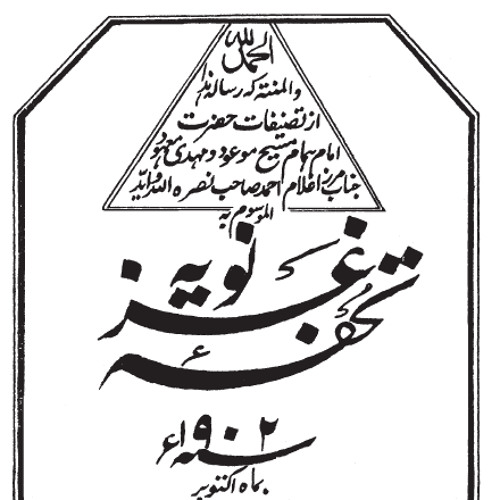 الحمد للہ
والمنتہ کہ رسالہ ہذا
از تصنیفات حضرت
امام ہمام مسیح موعود و مہدی معہود
جناب مرزا غلام احمد صاحب نصرہ اللہ و ایّد
الموسوم بہ
تحفہ غزنویہ
سنہ ۱۹۰۲ء
بماہ اکتوبر